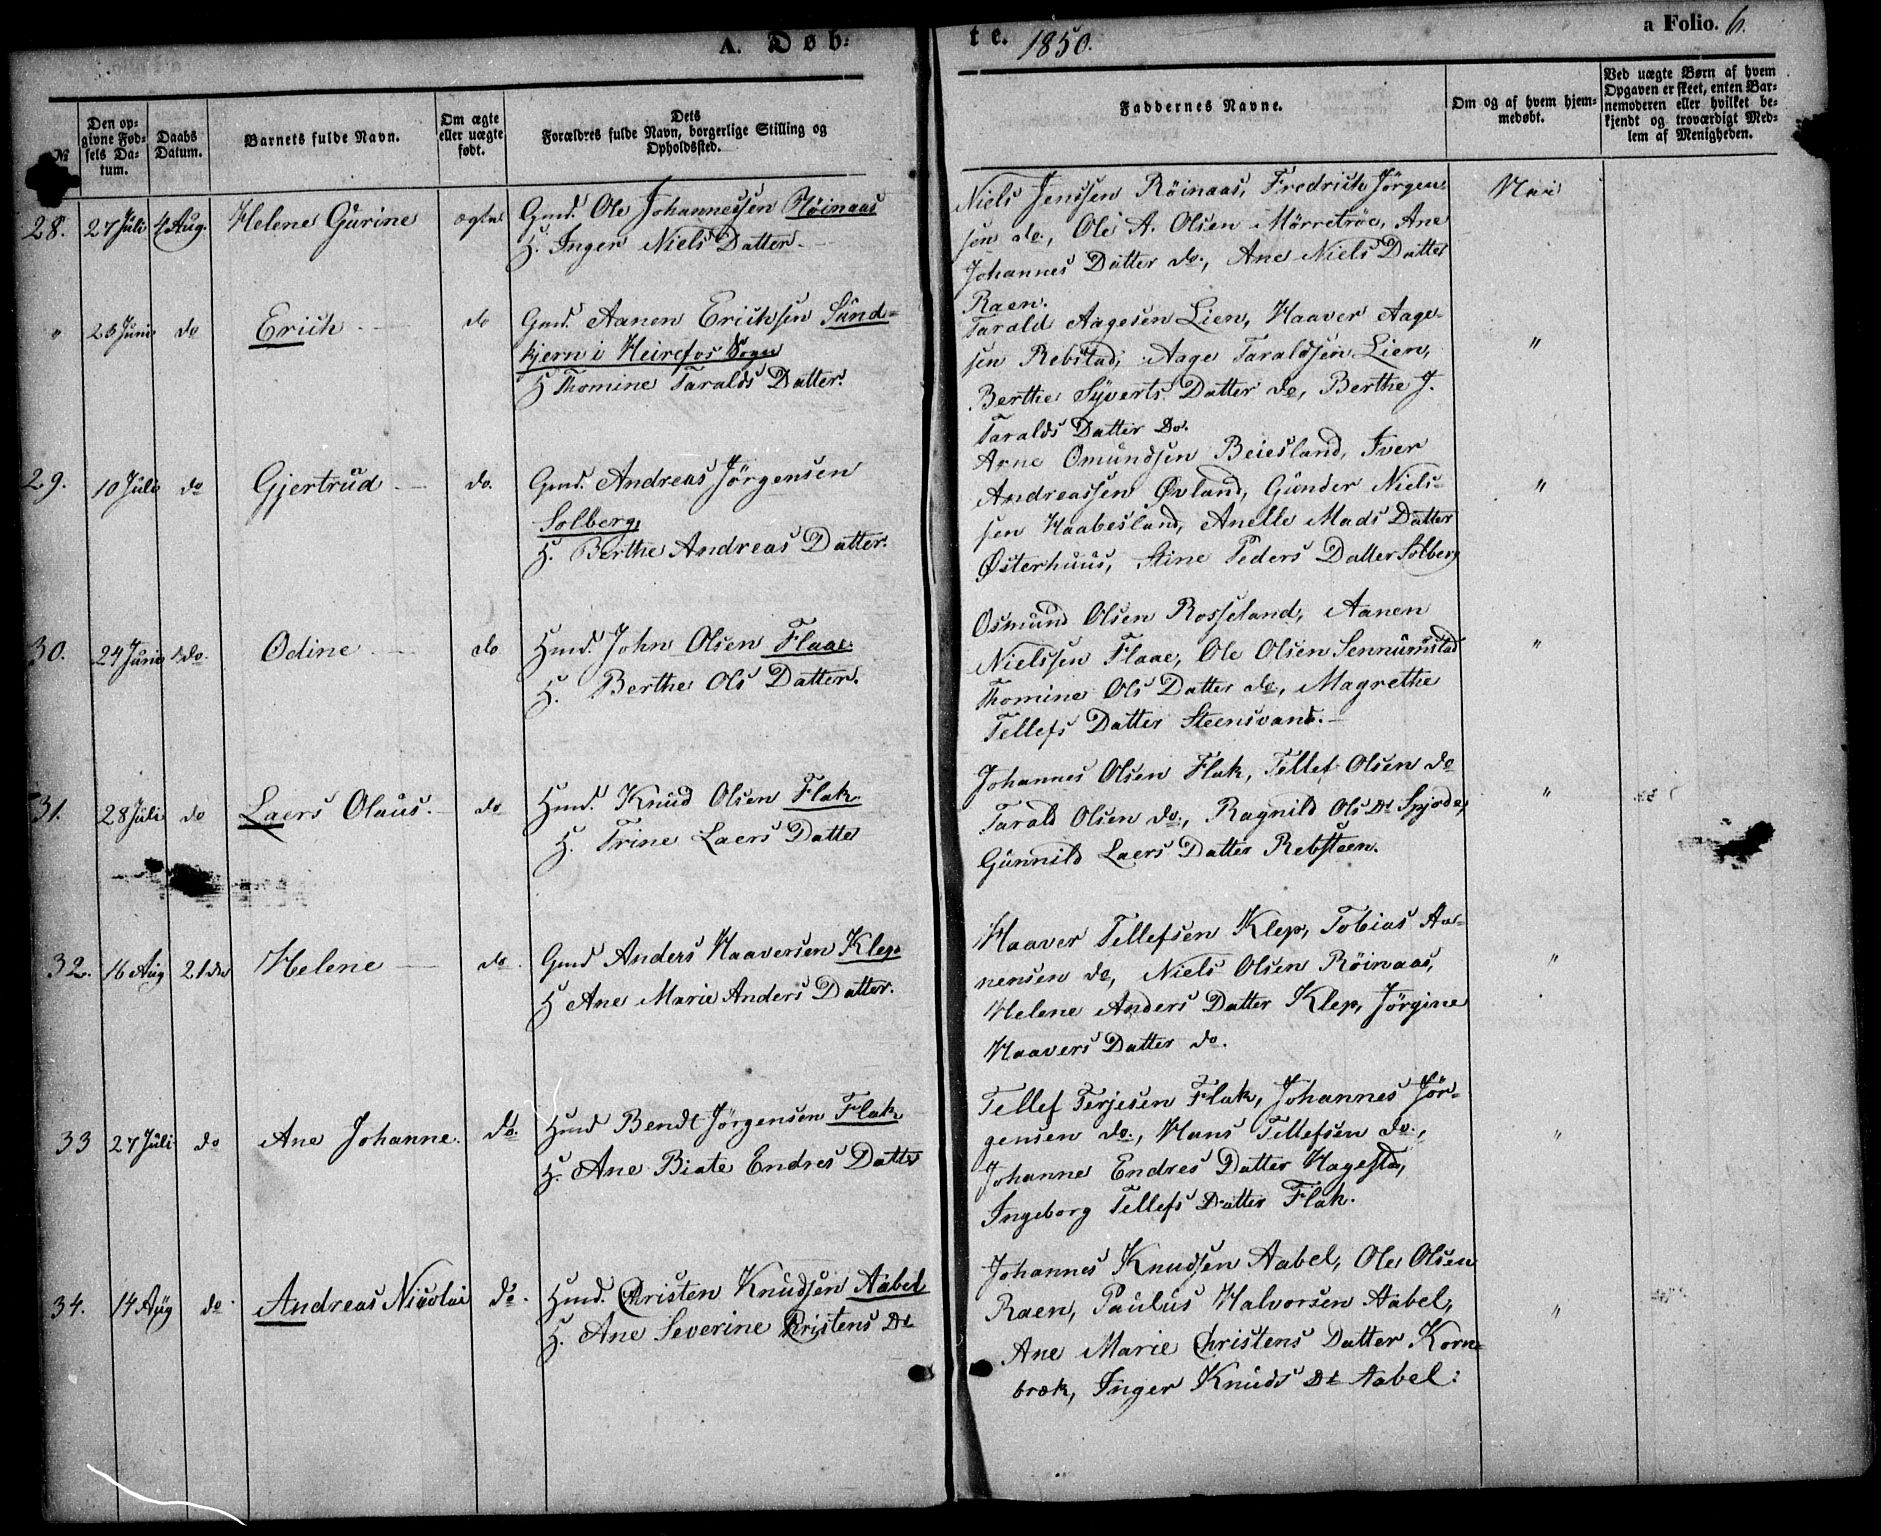 A. Døb- te. 1850. a Folio. 6.
№
Den op-
givne Fød-
sels Da-
tum.
Daabs
Datum.
Barnets fulde Navn.
Om ægte
eller uægte
født.
Dets
Forældres fulde Navn, borgerlige Stilling og
Opholdssted.
Faddernes Navne.
Om og af hvem hjem-
medøbt.
Ved uægte Børn af hvem
Opgaven er skeet, enten Bar-
nemoderen eller hvilket be-
kjendt og troværdigt Med-
lem af Menigheden.
28. 27 Juli 4 Aug. Helene Gurine ægte
Gmd. Ole Johannessen Röinaas
H. Inger Niels Datter.
Niels Jenssen Röinaas, Fredrich Jörgen
sen do., Ole A. Olsen Mörretröe, Ane
Johannes Datter do., Ane Niels Datter
Raen.
Nei
" 23 Juni do Erich do
Gmd. Aanen Erichsen Sund-
kjern i Heirefos Sogn
H Thomine Taralds Datter.
Tarald Aagesen Lien, Haaver Aage-
sen Rebstad, Aage Taraldsen Lien,
Berthe Syverts Datter do, Berthe J.
Taralds Datter Do.
"
29. 10 Juli do Gjertrud do.
Gmd. Andreas Jörgensen
Solberg,
H. Berthe Andreas Datter.
Arne Omundsen Beiesland, Iver
Andreassen Øvland, Gunder Niels-
sen Haabesland, Anelle Mads Datter
Østerhuus, Stine Peders Datter Solberg
"
30. 24 Juni do. Odine do
Hmd. John Olsen Flaae.
H. Berthe Ols Datter.
Osmund Olsen Rosseland, Aanen
Nielssen Flaae, Ole Olsen Sennumstad
Thomine Ols Datter do, Magrethe
Tellefs Datter Steensvand.
"
31. 28 Juli do Laers Olaus. do
Hmd. Knud Olsen Flak.
H. Trine Laers Datter
Johannes Olsen Flak, Tellef Olsen do
Tarald Olsen do., Ragnild Ols Dt Spjode,
Gunnild Laers Datter Rebsteen.
"
32. 16 Aug 21 do Helene do.
Gmd Anders Haaversen Klep.
H Ane Marie Anders Datter.
Haaver Tellefsen Klep, Tobias Aa-
nensen do, Niels Olsen Röinaas,
Helene Anders Datter Klep, Jörgine
Haavers Datter do.
"
33 27 Juli do Ane Johanne. do.
Hmd Bendt Jörgensen Flak
H. Ane Biate Endres Datter
Tellef Terjesen Flak, Johannes Jör-
gensen do., Hans Tellefsen do.,
Johanne Endres Datter Hagestø,
Ingeborg Tellefs Datter Flak.
"
34. 14 Aug do. Andreas Nicolai do.
Hmd. Christen Knudsen Aabel
H. Ane Severine Kristens Dt
Johannes Knudsen Aabel, Ole Olsen
Raen, Paulus Halvorsen Aabel,
Ane Marie Christens Datter Korn-
bræk, Inger Knuds Dt Aabel.
"